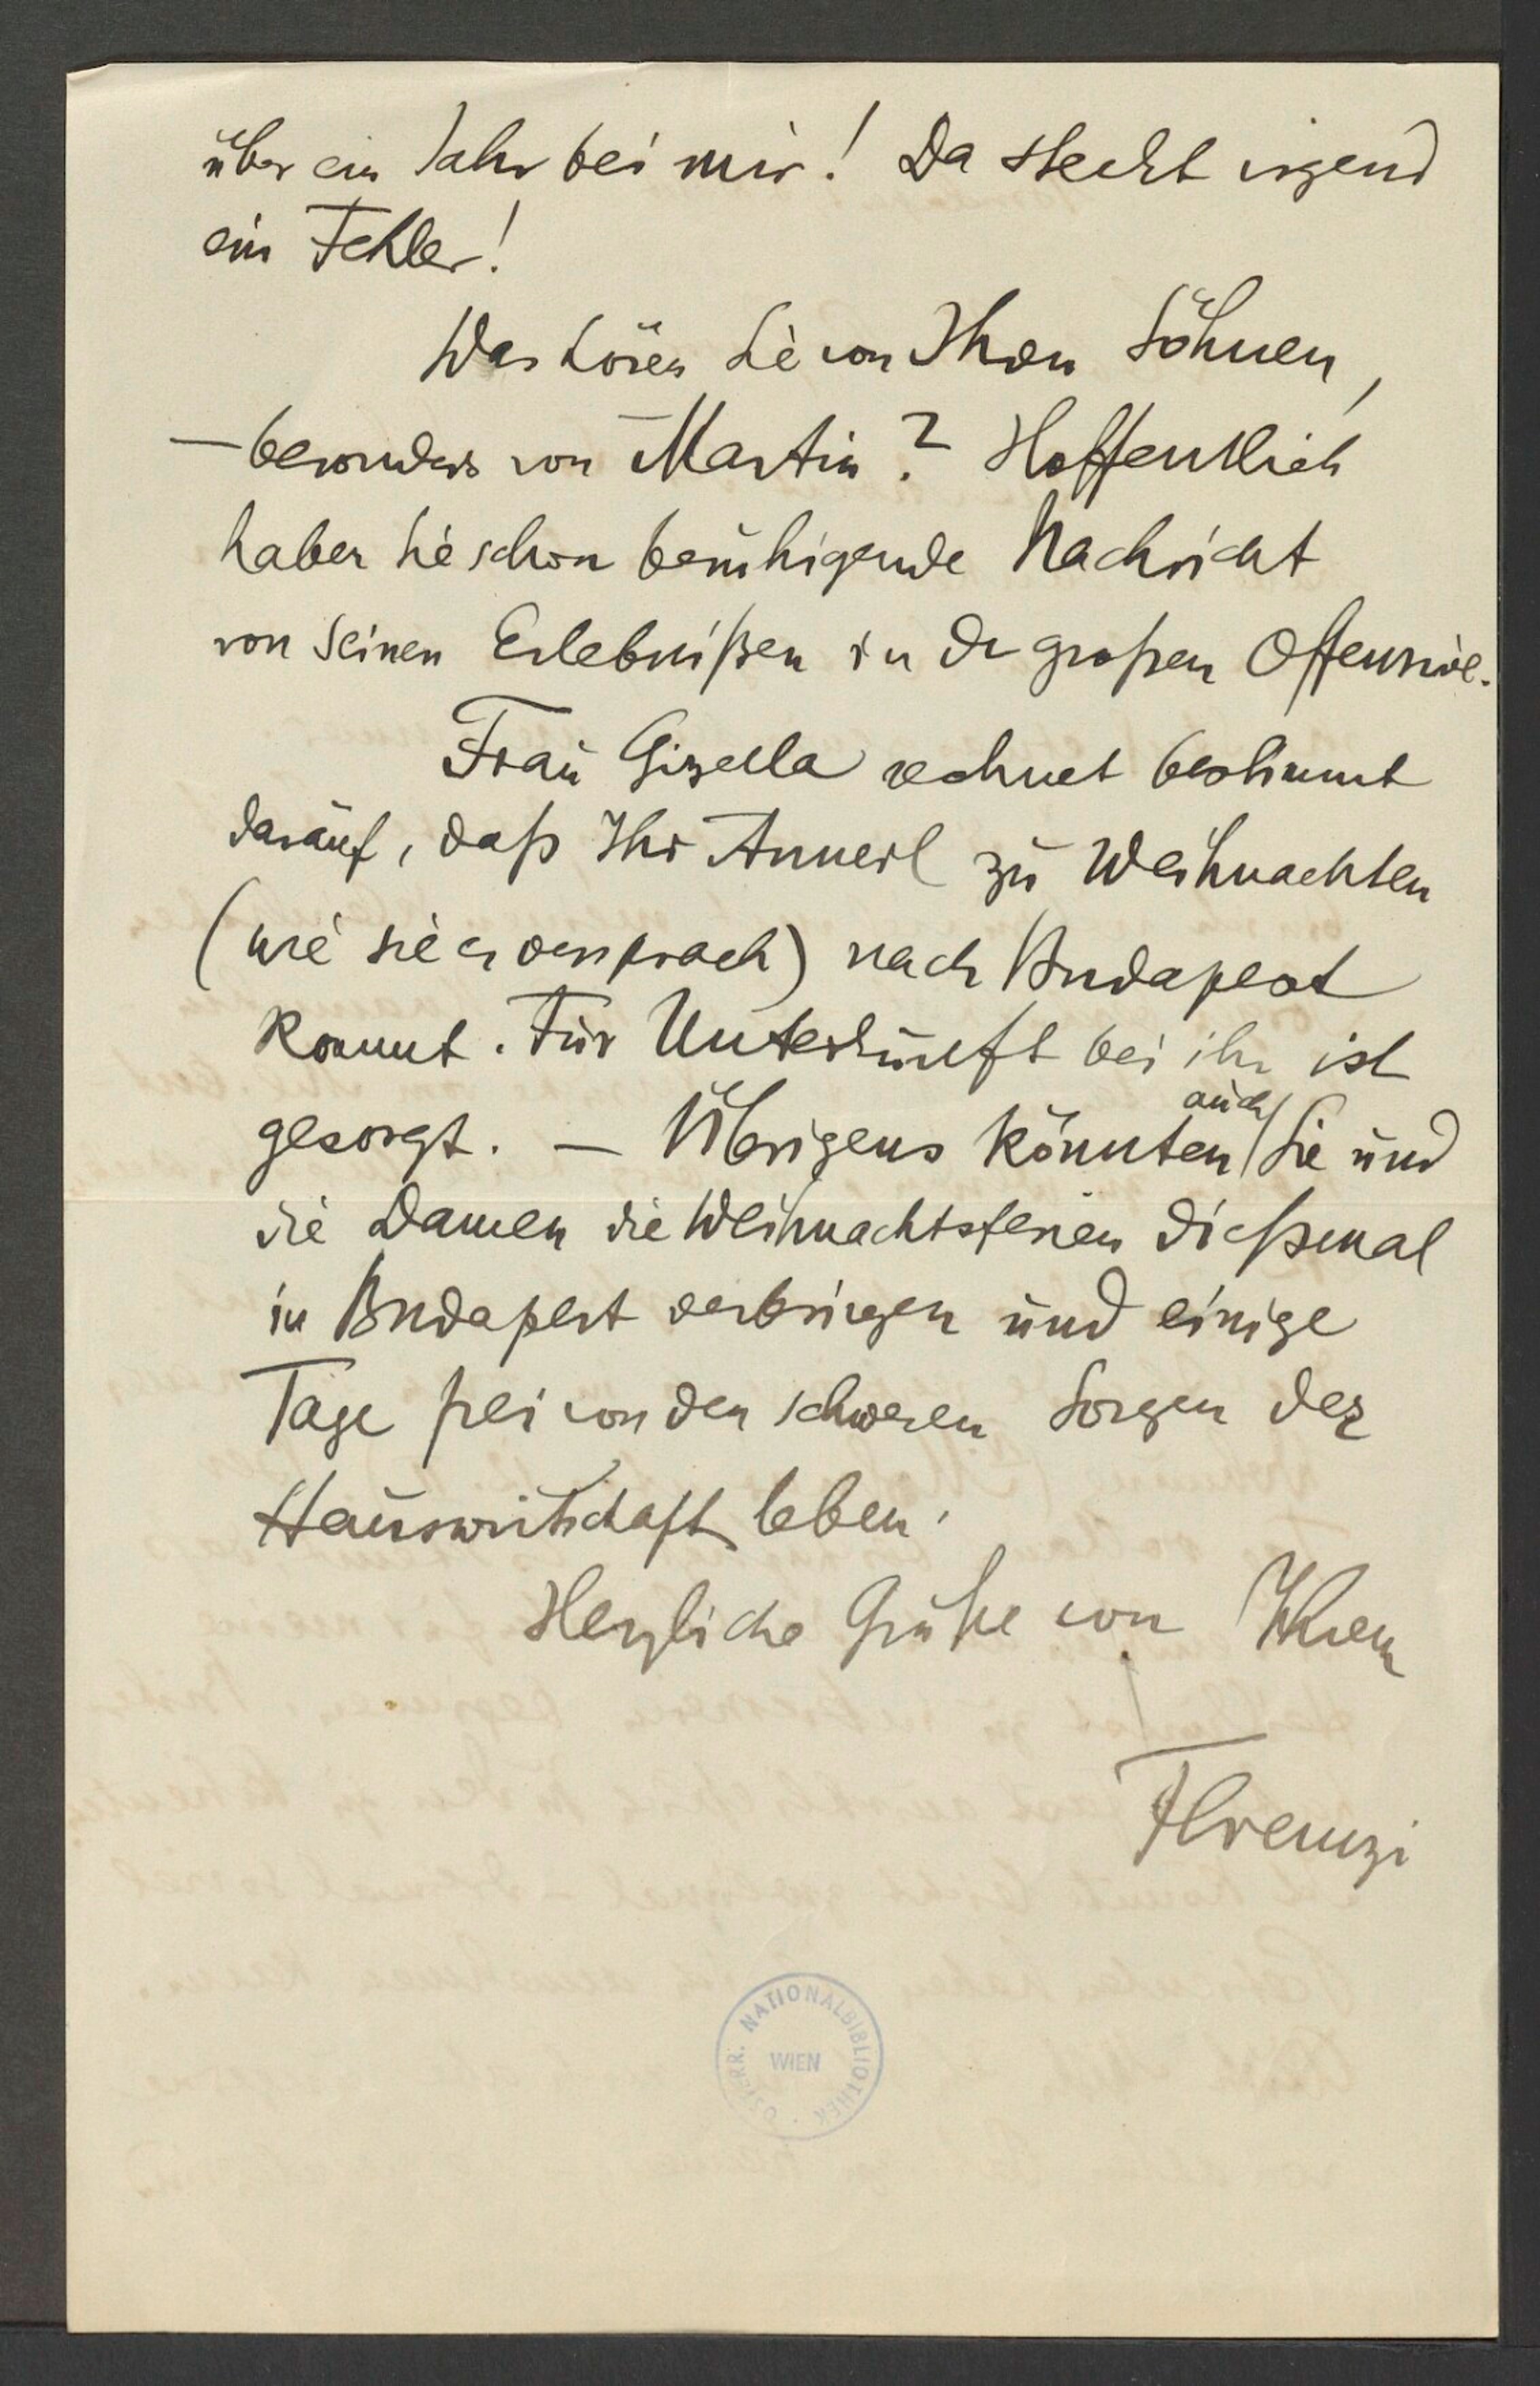 über ein Jahr bei mir! Da steckt irgend
ein Fehler!
Was hören Sie von Ihren Söhnen,
– besonders von Martin? Hoffentlich
haben Sie schon beruhigende Nachricht
von seinen Erlebnißen in der großen Offensive.
Frau Gizella rechnet bestimmt
darauf, daß Ihr Annerl zu Weihnachten
(wie sie es versprach) nach Budapest
kommt. Für Unterkunft bei ihr ist
gesorgt. – Übrigens könnten auch Sie und
die Damen die Weihnachtsferien dießmal
in Budapest verbringen und einige
Tage frei von den schweren Sorgen der
Hauswirtschaft leben.
Herzliche Grüße von Ihrem
Ferenczi
ÖSTERR. NATIONALBIBLIOTHEK
WIEN